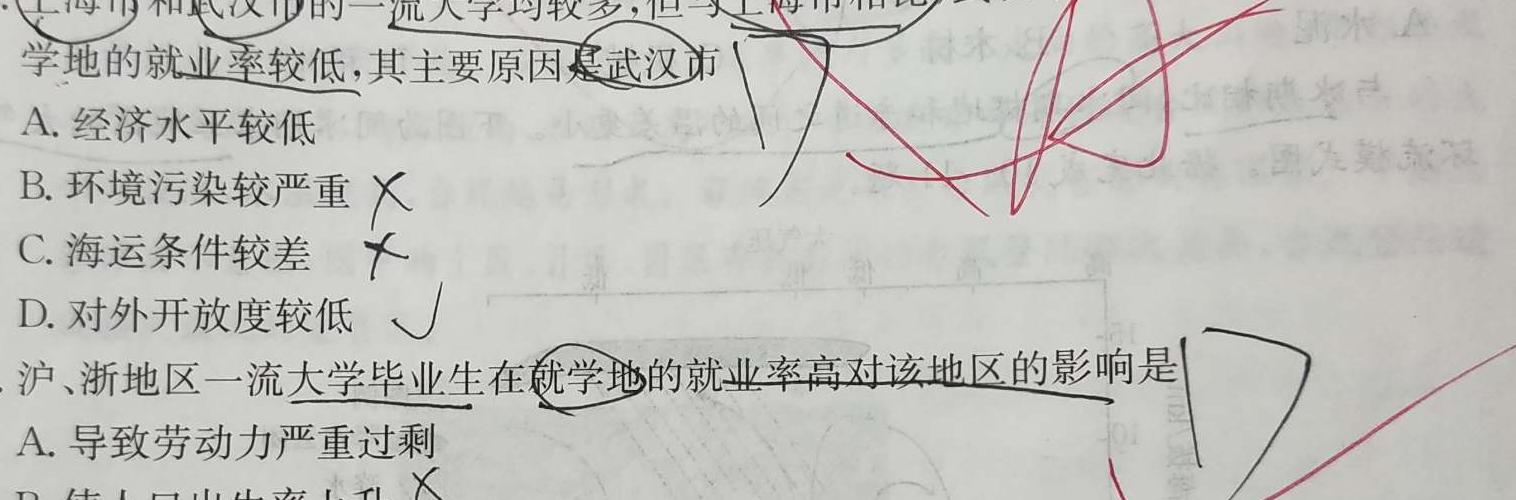 上海市和武汉市的一流大学均较多,但与上海市相比
学地的就业率较低,其主要原因是武汉市
A. 经济水平较低
B. 环境污染较严重
C. 海运条件较差
D. 对外开放度较低
沪、浙地区一流大学毕业生在就学地的就业率高对该地区的影响是
A. 导致劳动力严重过剩
B. 使人口出生率上升